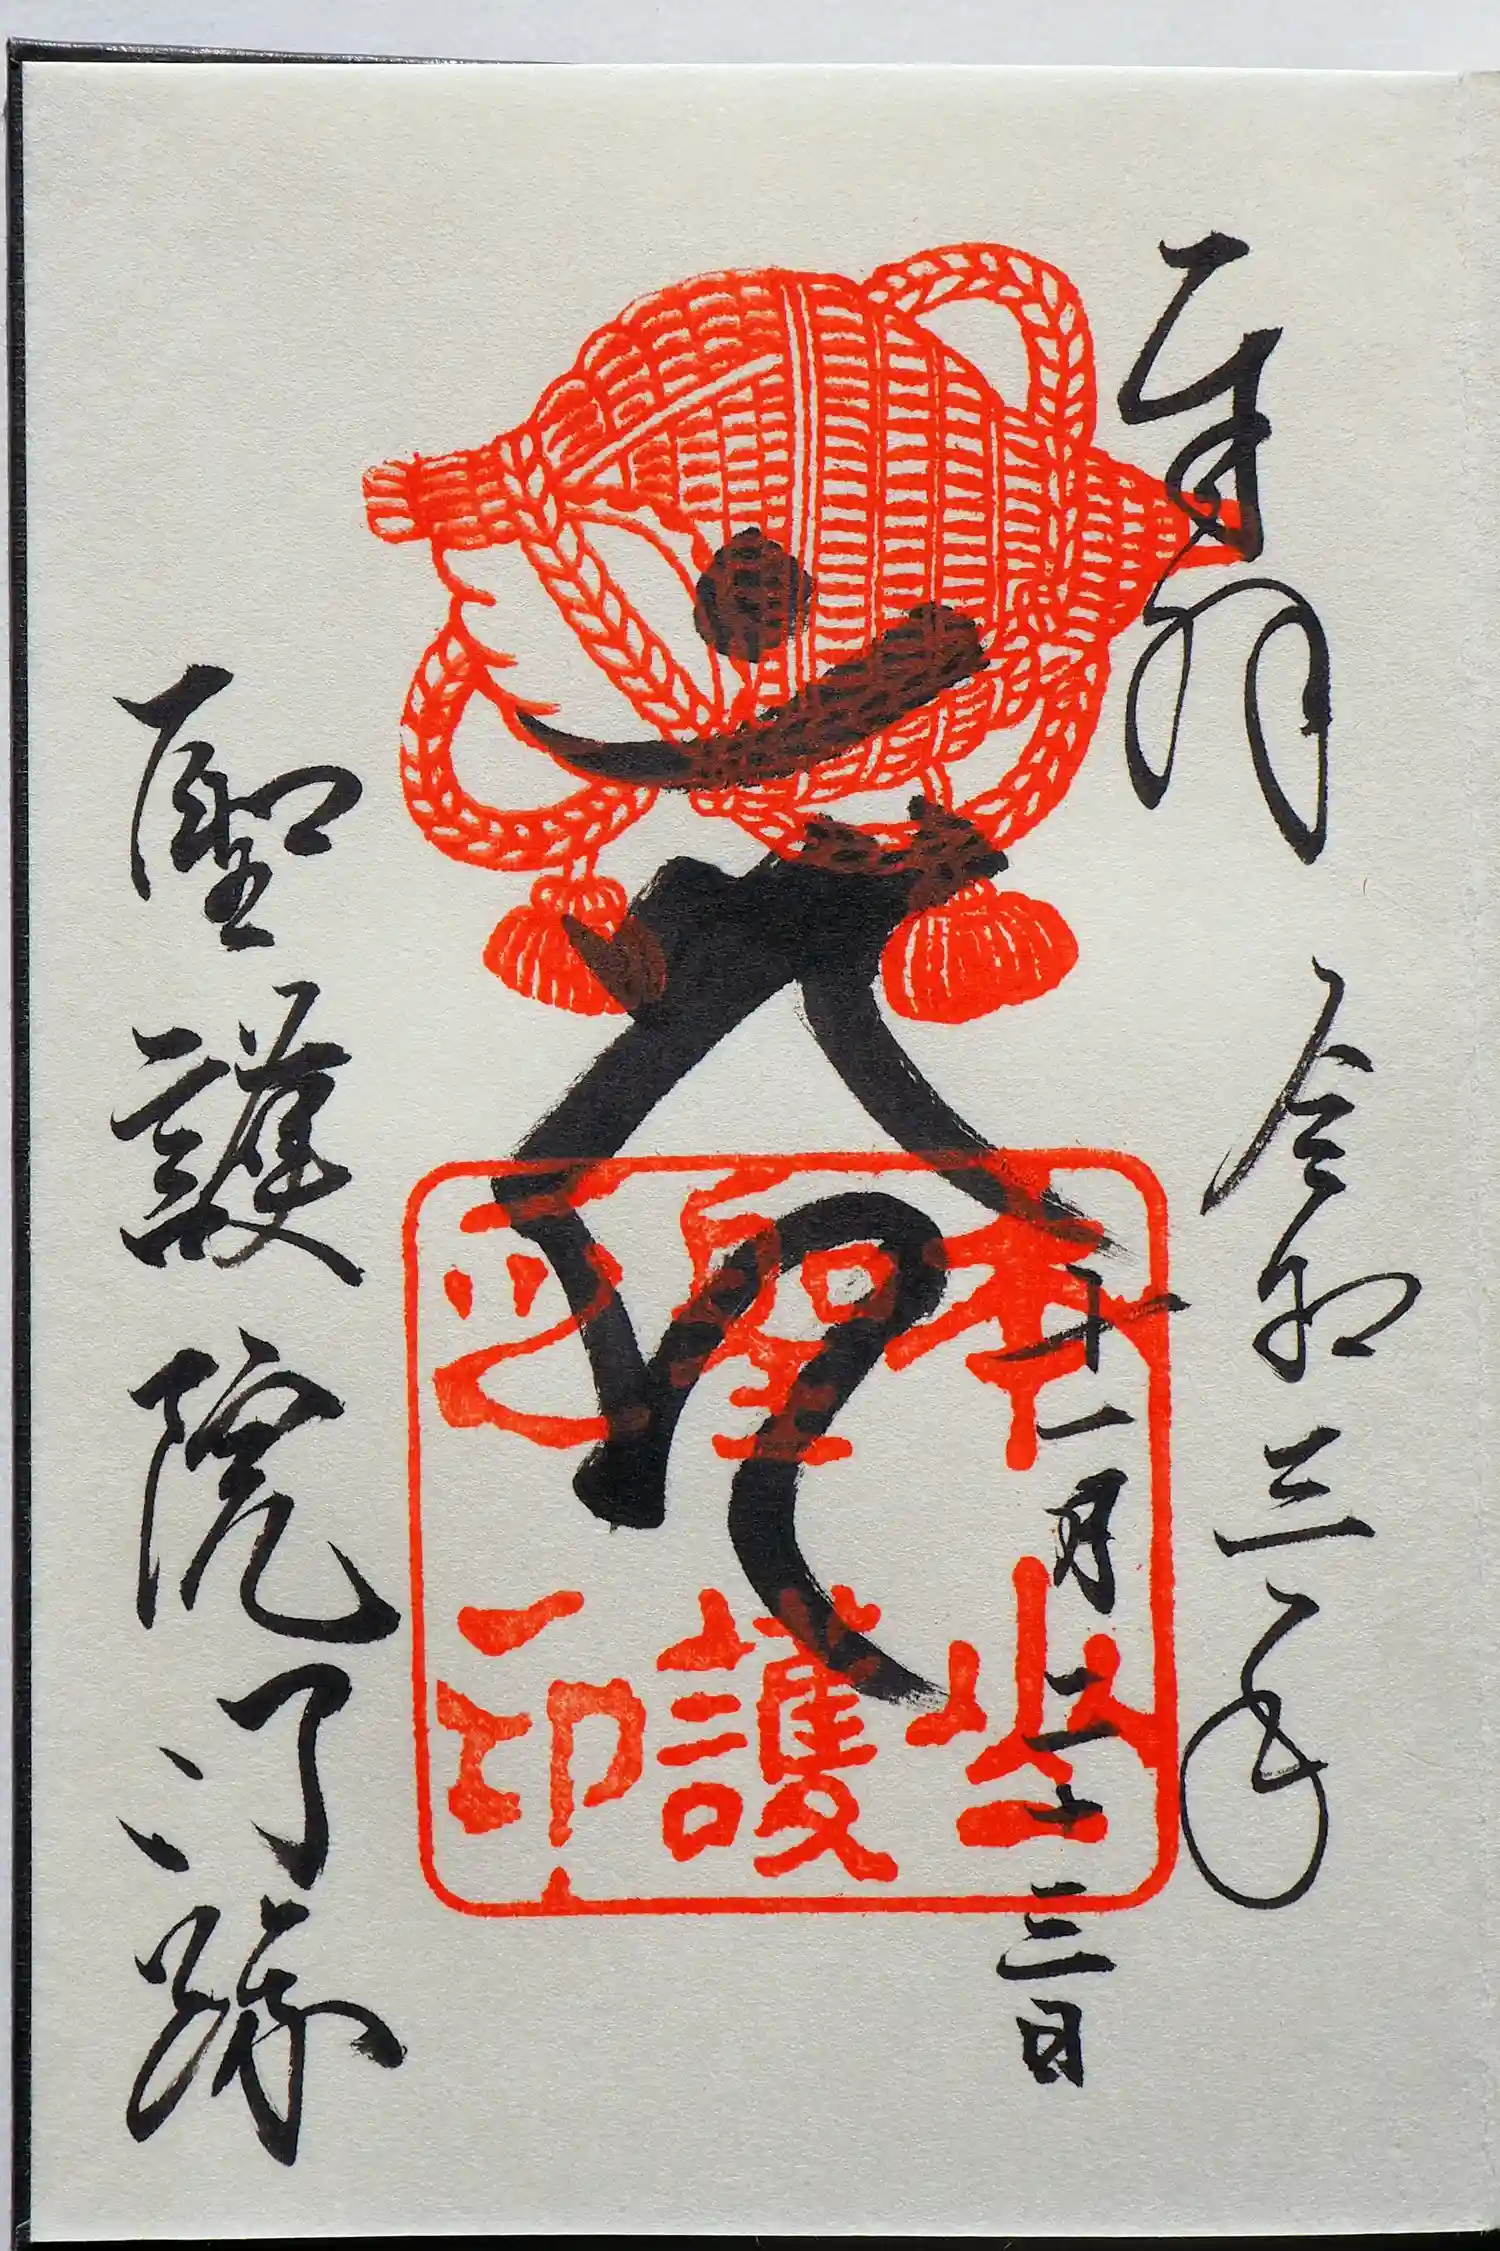 奉拝
令和三年
十一月二十三日
本山
聖護
之印
聖護院門跡